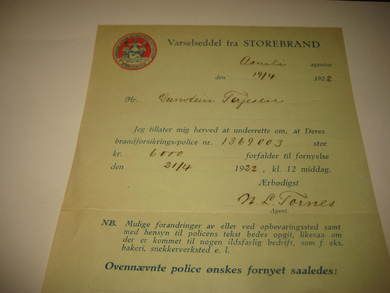 Varselseddel fra STOREBRAND
agentur
den 19/4 1922
Hr.
Jeg tillater mig herved at underrette om, at Deres
brandforsikrings-police nr. 1369003 stor
kr. 6000 forfalder til fornyelse
den 21/4 1922, kl. 12 middag.
Ærbødigst
N. L. Tornes
Agent.
NB. Mulige forandringer av eller ved opbevaringssted samt
med hensyn til policens tekst bedes opgit, likesaa om
der er kommet til nogen ildsfarlig bedrift, som f. eks.
bakeri, snekkerverksted e. l.
Ovennævnte police ønskes fornyet saaledes: